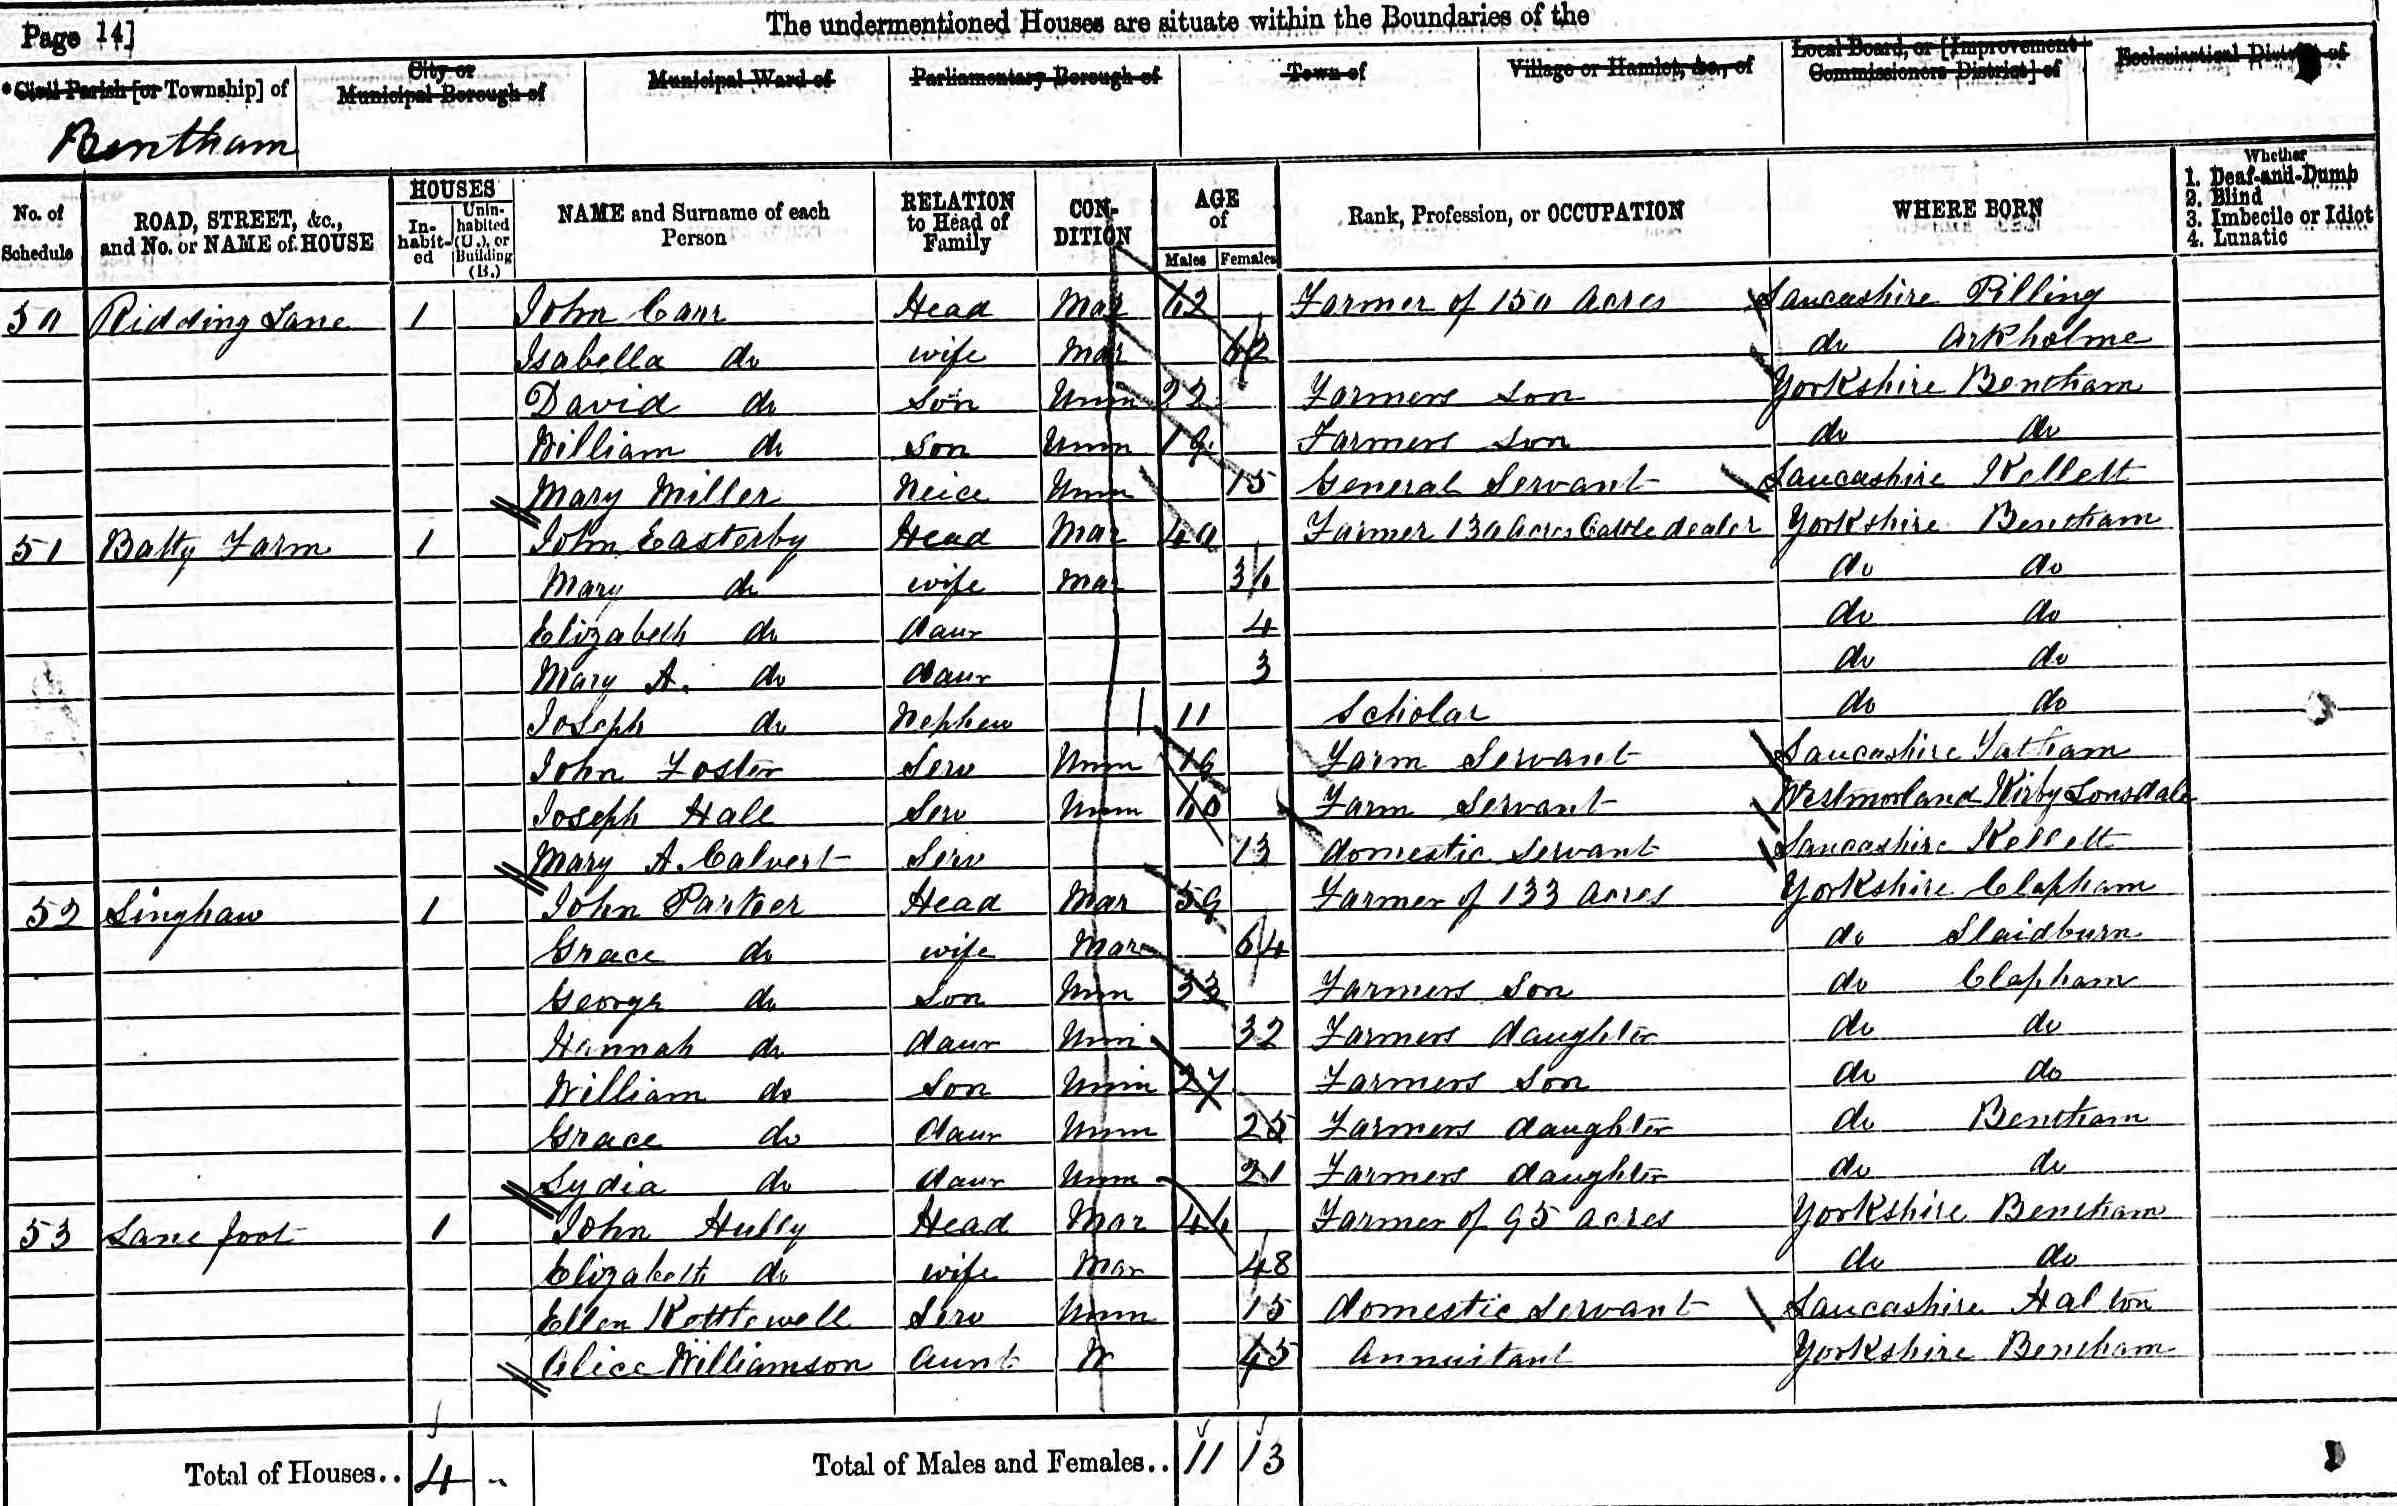 Page 14]
The undermentioned Houses are situate within the Boundaries of the
*Civil Parish [or Township] of
City or Municipal Borough of
Municipal Ward of
Parliamentary Borough of
Town of
Village or Hamlet, &c., of
Local Board, or [Improvement Commissioners District] of
Ecclesiastical District of
Bentham
No. of Schedule
ROAD, STREET, &c., and No. or NAME of HOUSE
HOUSES
In-habit-ed
Unin-habited (U.), or Building (B.)
NAME and Surname of each Person
RELATION to Head of Family
CON-DITION
AGE of
Males Females
Rank, Profession, or OCCUPATION
WHERE BORN
Whether
1. Deaf-and-Dumb
2. Blind
3. Imbecile or Idiot
4. Lunatic
50 Ridding Lane 1 John Carr Head Mar 62 Farmer of 150 Acres Lancashire Pilling
Isabella do wife Mar 62 do Arkholme
David do Son Unm 22 Farmers Son Yorkshire Bentham
William do Son Unm 19 Farmers Son do do
Mary Miller Neice Unm 15 General Servant Lancashire Kellett
51 Batty Farm 1 John Easterby Head Mar 40 Farmer 130 Acres Cattle dealer Yorkshire Bentham
Mary do wife Mar 36 do do
Elizabeth do daur 4 do do
Mary A. do daur 3 do do
Joseph do Nephew 11 Scholar do do
John Foster Serv Unm 19 Farm Servant Lancashire Tatham
Joseph Hall Serv Unm 60 Farm Servant Westmorland Kirby Lonsdale
Mary A. Calvert Serv 13 domestic Servant Lancashire Kellett
52 Linghaw 1 John Parker Head Mar 59 Farmer of 133 Acres Yorkshire Clapham
Grace do wife Mar 64 do Slaidburn
George do Son Unm 33 Farmers Son do Clapham
Hannah do daur Unm 32 Farmers daughter do do
William do Son Unm 27 Farmers Son do do
Grace do daur Unm 25 Farmers daughter do Bentham
Lydia do daur Unm 21 Farmers daughter do do
53 Lane foot 1 John Hully Head Mar 46 Farmer of 95 Acres Yorkshire Bentham
Elizabeth do wife Mar 48 do do
Ellen Kettlewell Serv Unm 15 domestic Servant Lancashire Halton
Alice Williamson Aunt W 45 Annuitant Yorkshire Bentham
Total of Houses.. 4 Total of Males and Females.. 11 13